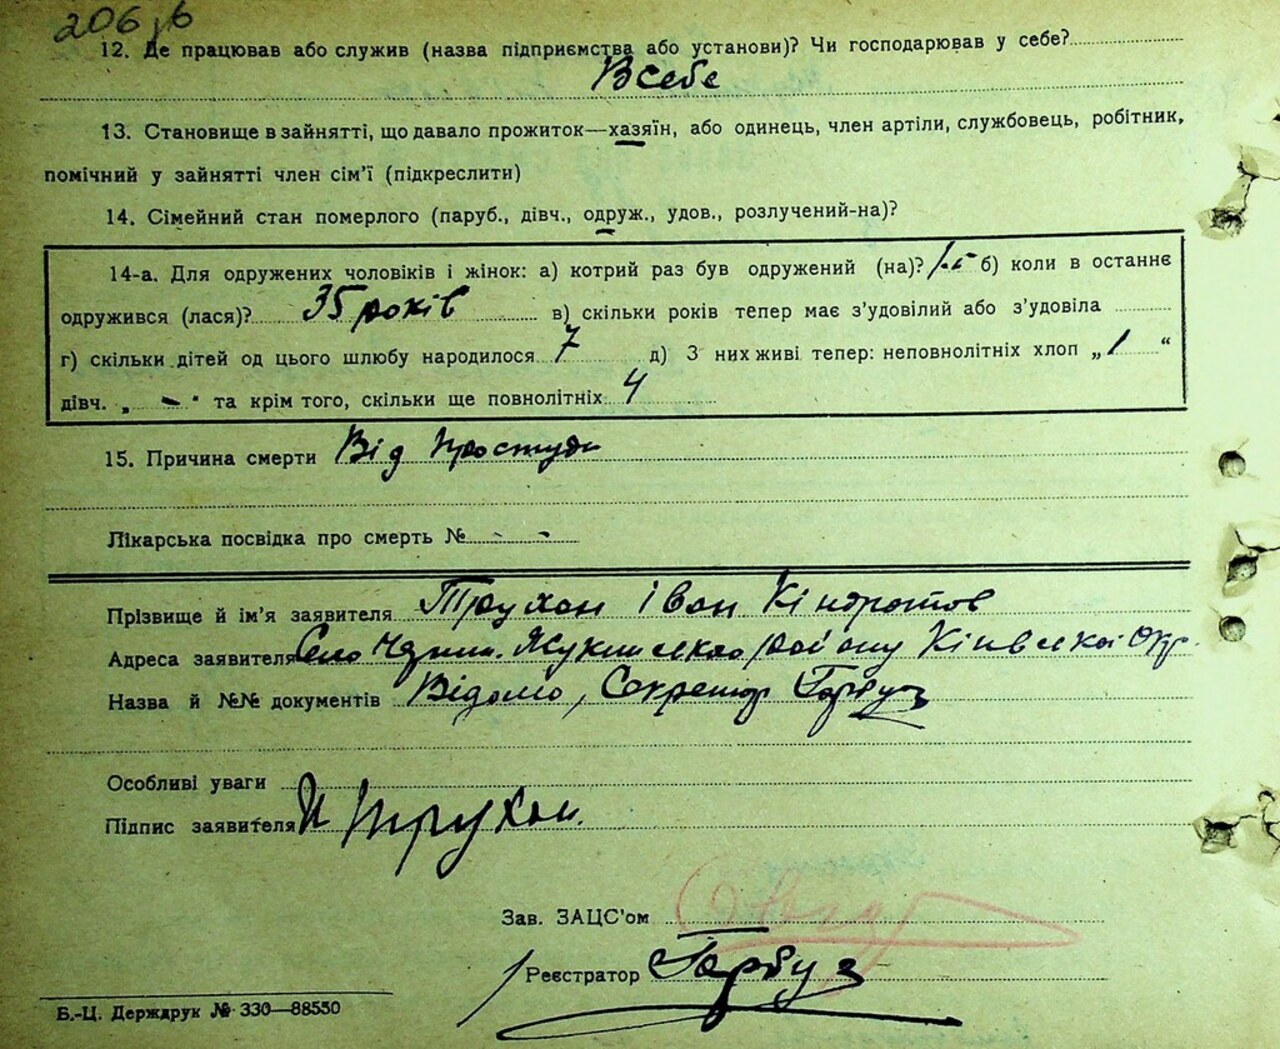 206 зв
12. Де працював або служив (назва підприємства або установи)? Чи господарював у себе?
В себе
13. Становище в зайнятті, що давало прожиток—хазяїн, або одинець, член артіли, службовець, робітник,
помічний у зайнятті член сім'ї (підкреслити)
14. Сімейний стан померлого (паруб., дівч., одруж., удов., розлучений-на)?
14-а. Для одружених чоловіків і жінок: а) котрий раз був одружений (на)? б) коли в останнє
одружився (лася)? 35 років в) скільки років тепер має з'удовілий або з'удовіла
г) скільки дітей од цього шлюбу народилося 7 д) З них живі тепер: неповнолітніх хлоп „ 1 “
дівч. „ - “ та крім того, скільки ще повнолітніх 4
15. Причина смерти Від простуди
Лікарська посвідка про смерть № - -
Прізвище й ім'я заявителя Трухан Іван Кіндратов
Адреса заявителя Село району Київської Окр.
Назва й №№ документів Відомо, Секретар Гарбуз
Особливі уваги
Підпис заявителя И Трухан.
Зав. ЗАЦС'ом
Реєстратор Гарбуз
Б.-Ц. Держдрук № 330—88550